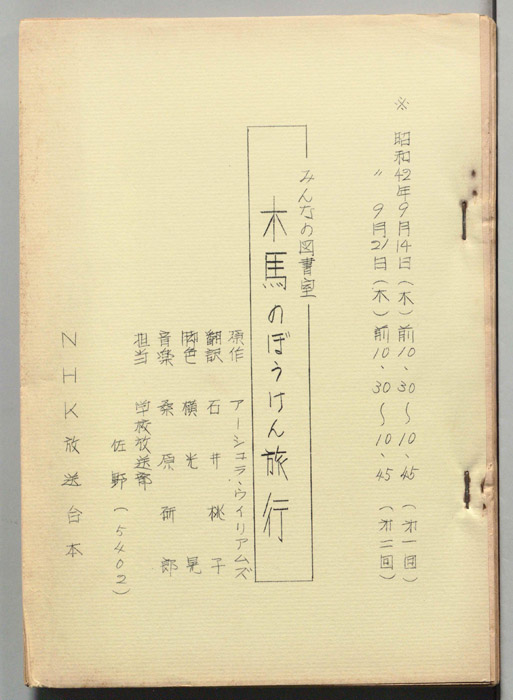 ※ 昭和42年9月14日(木)前10、30〜10、45(才一回)
〃 9月21日(木)前10、30〜10、45(才二回)
みんなの図書室
木馬のぼうけん旅行
原作 アーシュラ・ウイリアムズ
翻訳 石井桃子
脚色 横光晃
音楽 桑原研郎
担当 学校放送部
佐野(5402)
NHK放送台本